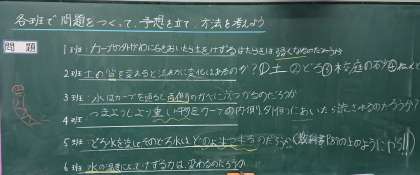 各班で問題をつくって、予想を立て、方法を考えよう
問題
1班：カーブの外がわにらをおいたら土をけずるはたらきは弱くなるのだろうか
2班 土の量を変えると流れ方に変化はあるのか？①土のどう②
3班：水はカーブを通ると直角のかべにぶつかるのだろうか
4班 つまようじより重い カーブの内側、外側においたら流されるのだろうか
5班：どろ水を流してそのどろ水はどの つもるのだろうか（教科書P.87の上のように
6班 水の によってけずる力は変わるのだろうか